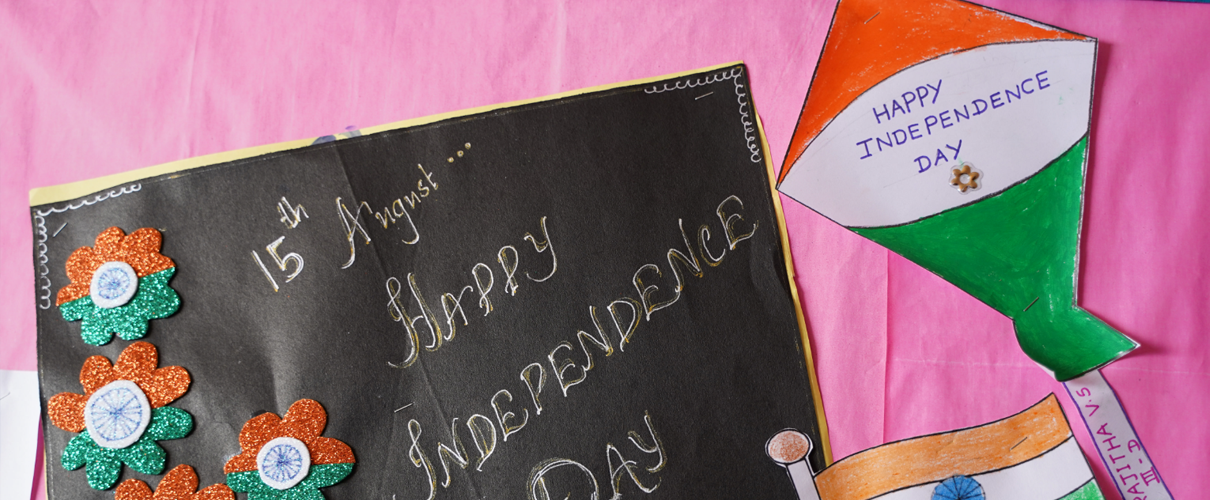 15th August...
HAPPY
INDEPENDENCE
DAY
HAPPY
INDEPENDENCE
DAY
AJITHA V.S
III - D